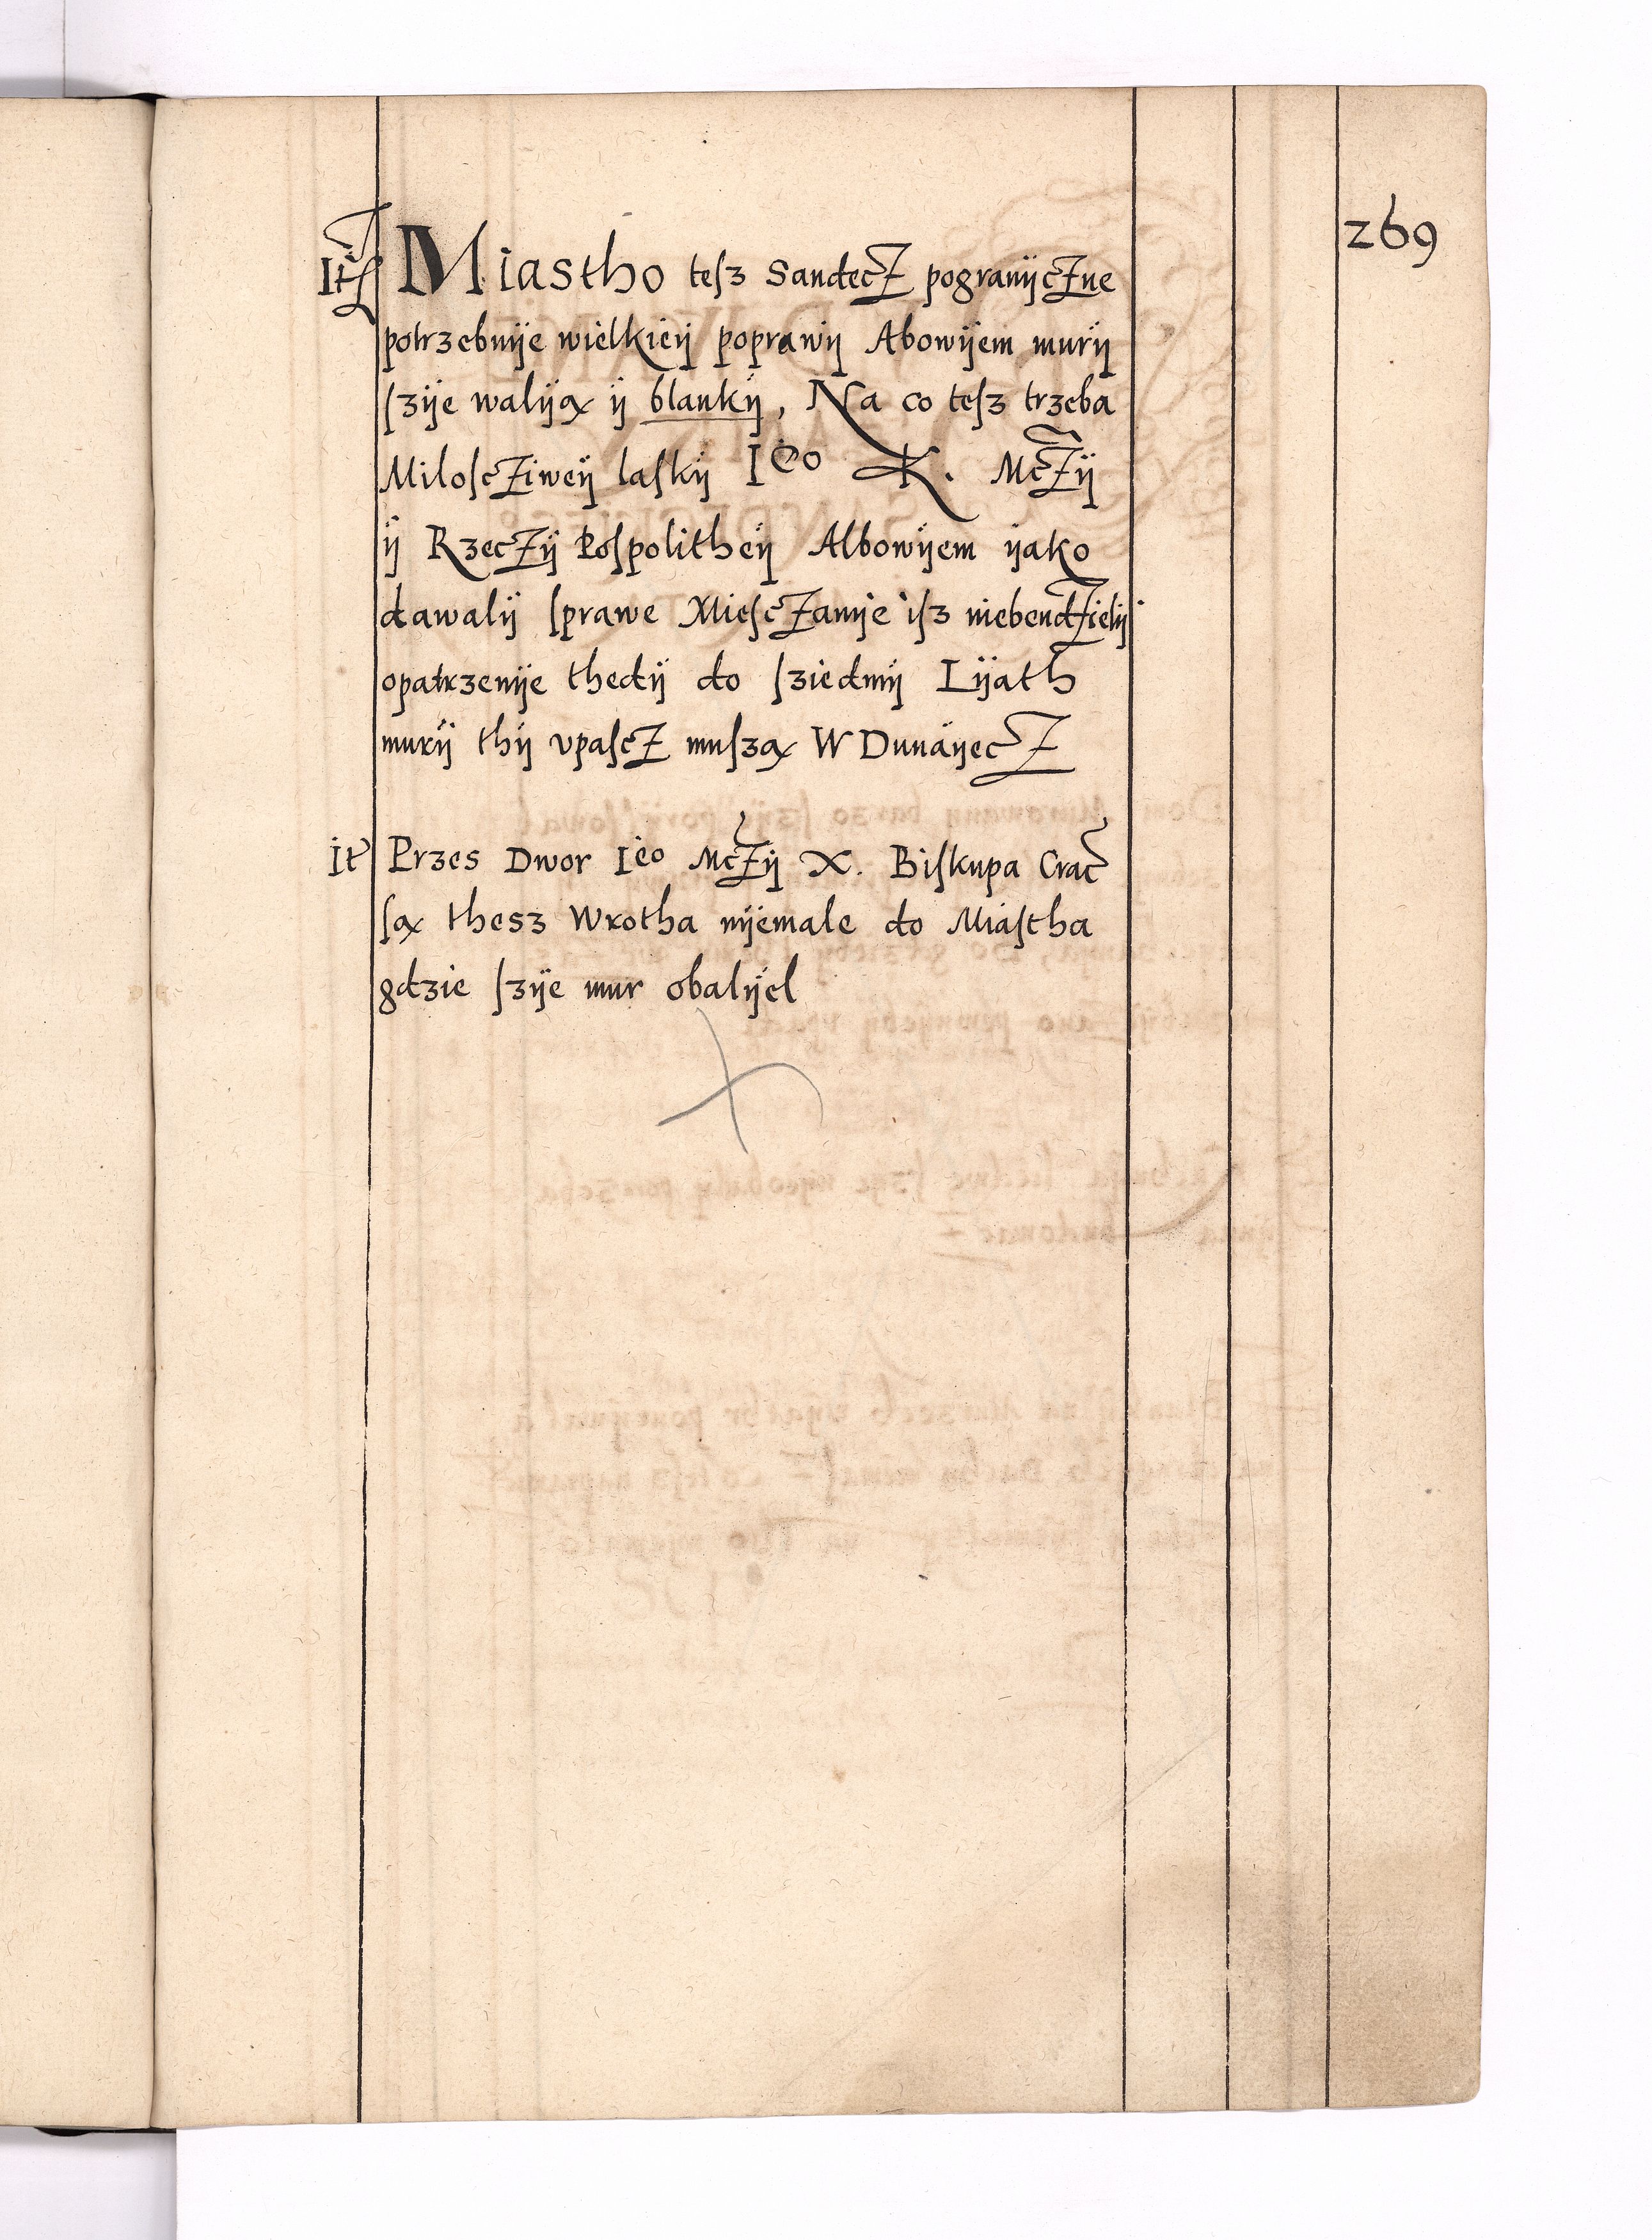 269
It Miastho tesz Sandecz pogranijczne
potrzebuije wielkieij poprawij Abowijem murij
szije waliją ij blankij, Na co tesz trzeba
Miloscziwej laskij Ieo K. Mczij
ij Rzeczij Pospolitheij Albowijem ijako
dawalij sprawe Miesczanije isz niebendzielij
opatrzenije thedij do sziedmij Lijath
murij thij upascz muszą W Dunaijecz
It Przes Dwor Ieo Mczij X. Biskupa Crac
są thesz Wrotha nijemale do Miastha
gdzie szije mur obalijel